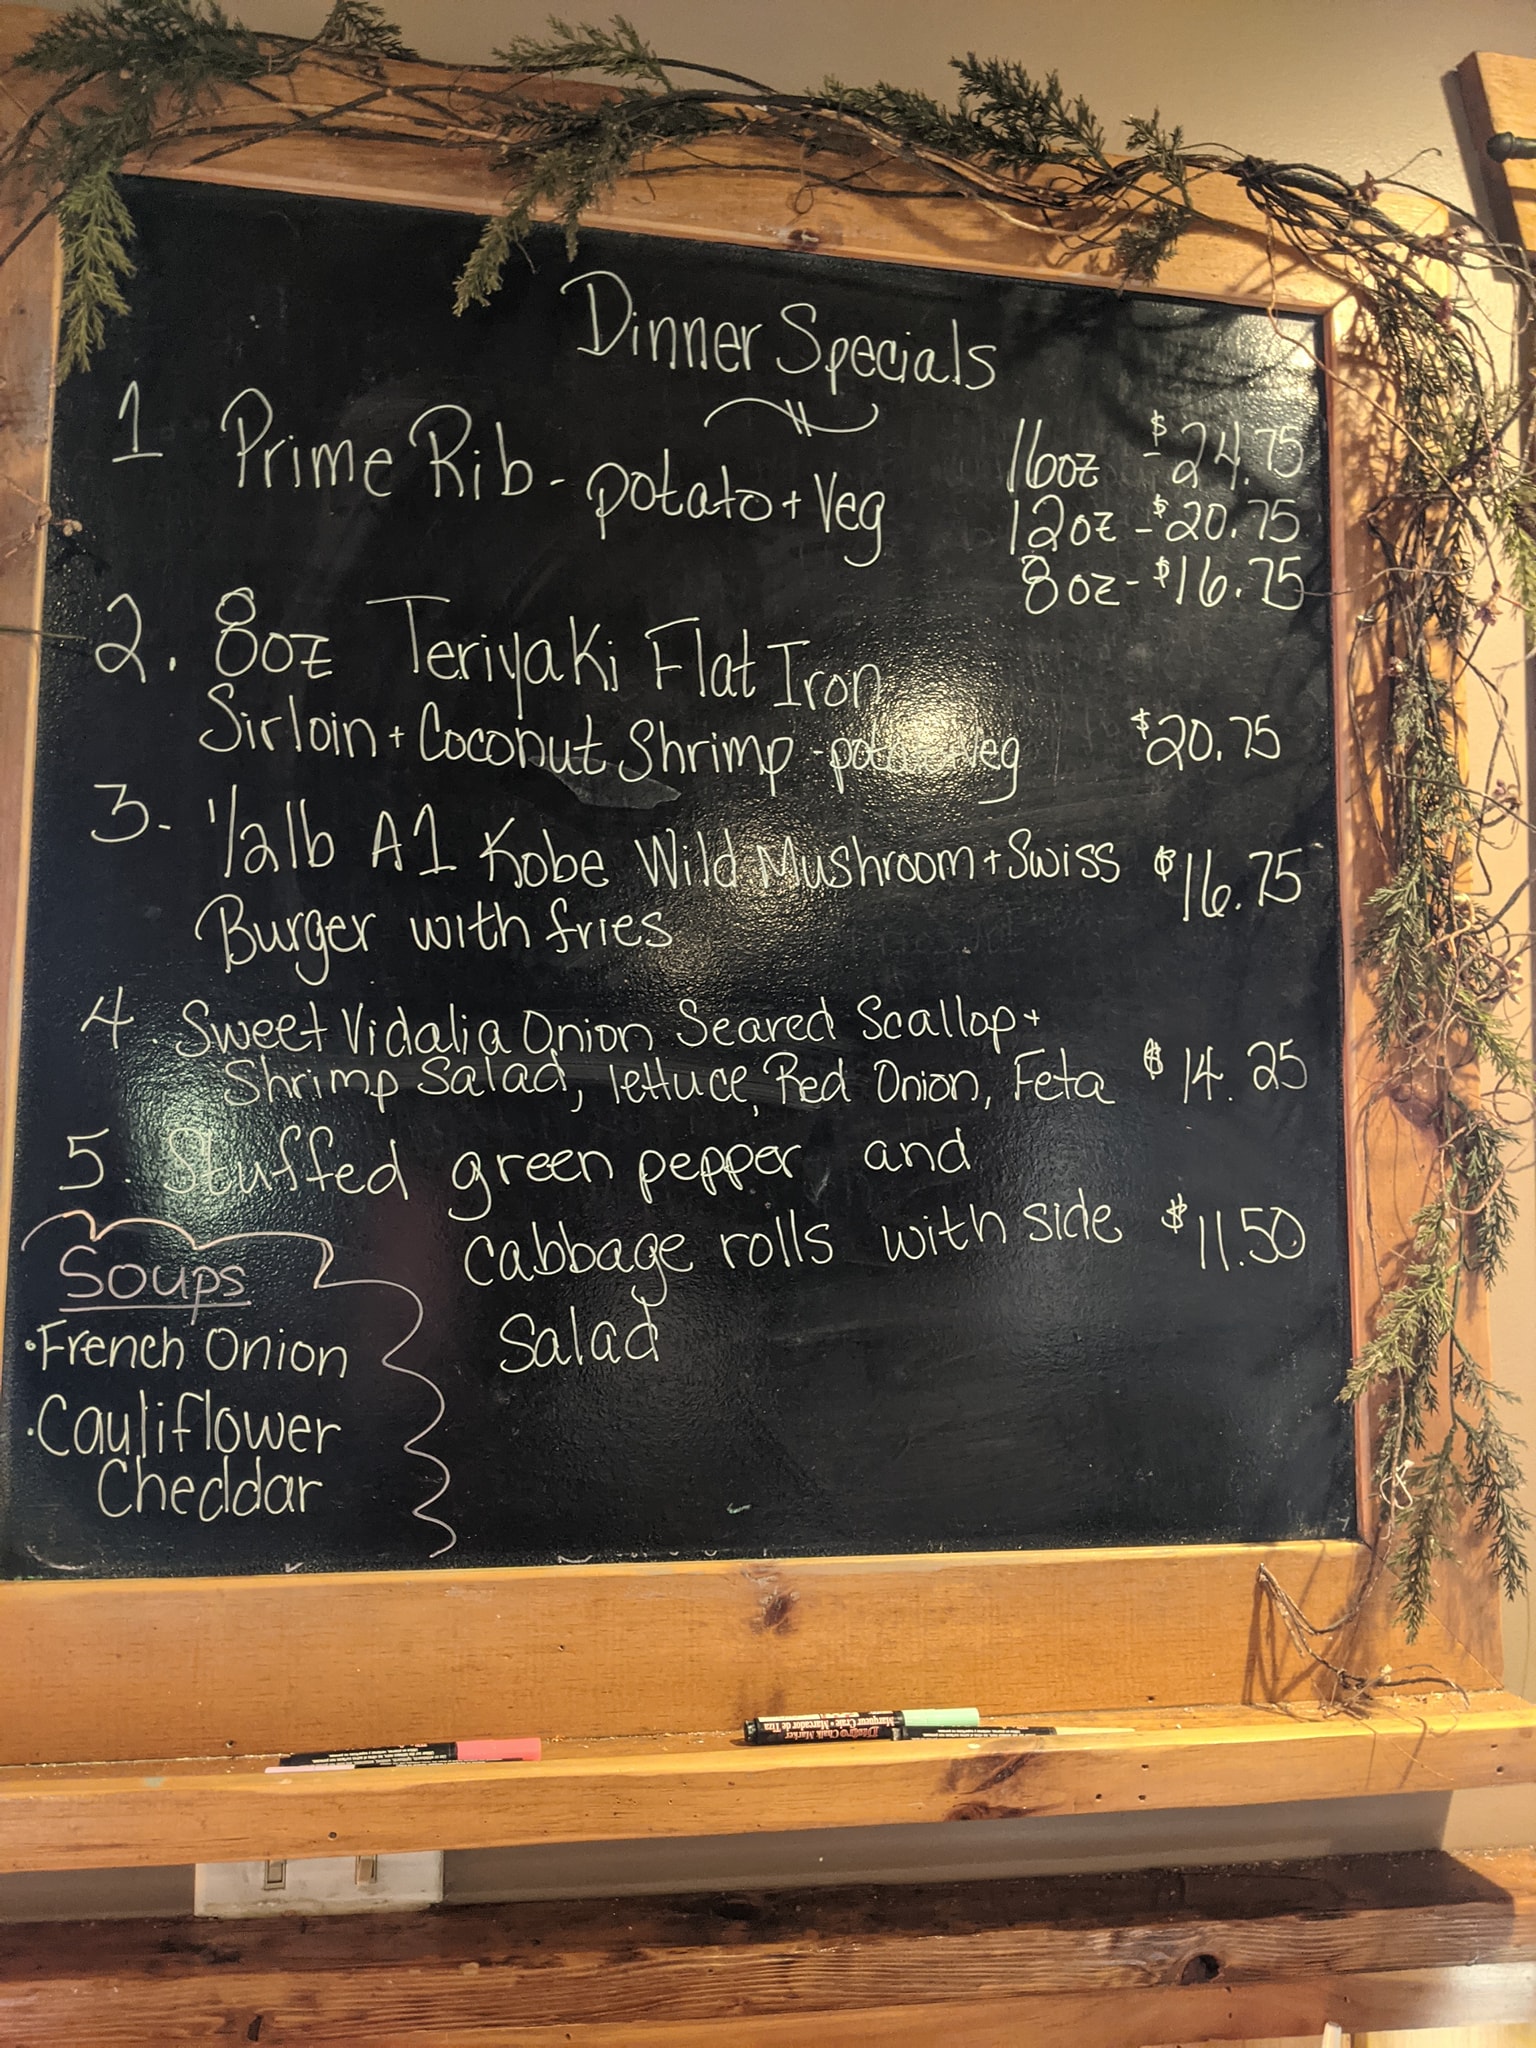 Dinner Specials
1 Prime Rib - potato + Veg
16oz - $24.75
12oz - $20.75
8oz - $16.75
2. 8oz Teriyaki Flat Iron
Sirloin + Coconut Shrimp - potato + veg $20.75
3- 1/2lb A1 Kobe Wild Mushroom + Swiss $16.75
Burger with fries
4. Sweet Vidalia Onion Seared Scallop +
Shrimp Salad, lettuce, Red Onion, Feta $14.25
5. Stuffed green pepper and
cabbage rolls with side $11.50
Salad
Soups
• French Onion
• Cauliflower
Cheddar
Chalk Marker
Marqueur Craie • Marcador de Tiza